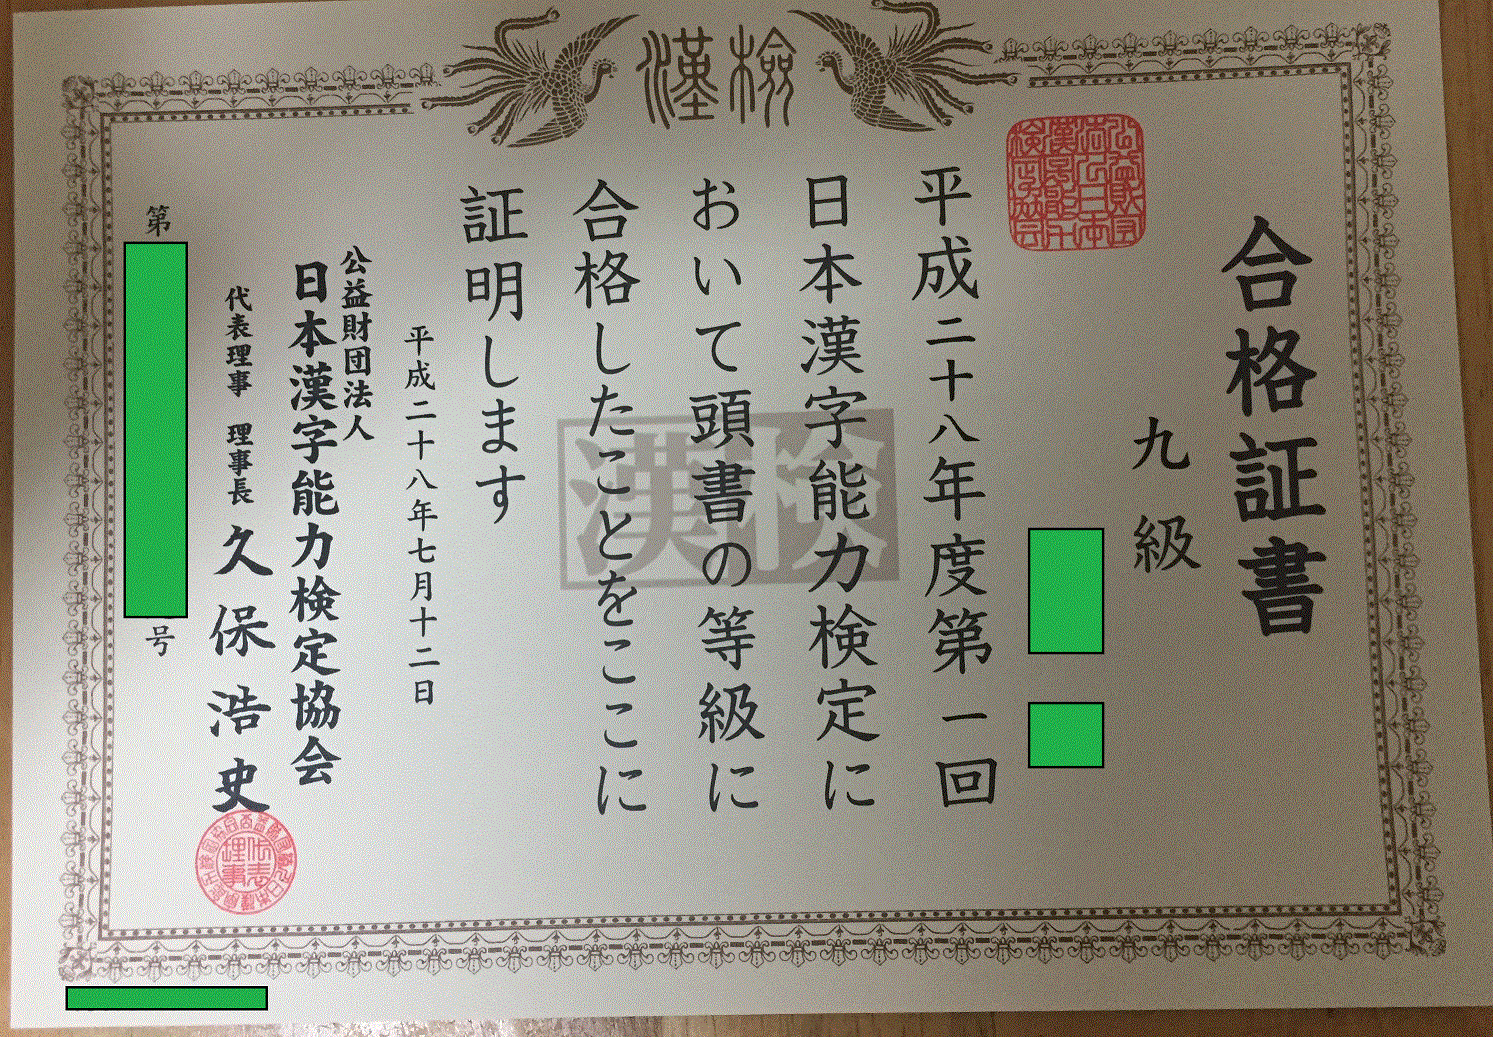 漢検
合格証書
九級
平成二十八年度第一回
日本漢字能力検定に
おいて頭書の等級に
合格したことをここに
証明します
平成二十八年七月十二日
公益財団法人
日本漢字能力検定協会
代表理事 理事長 久保浩史
第
号
漢検
代表理事